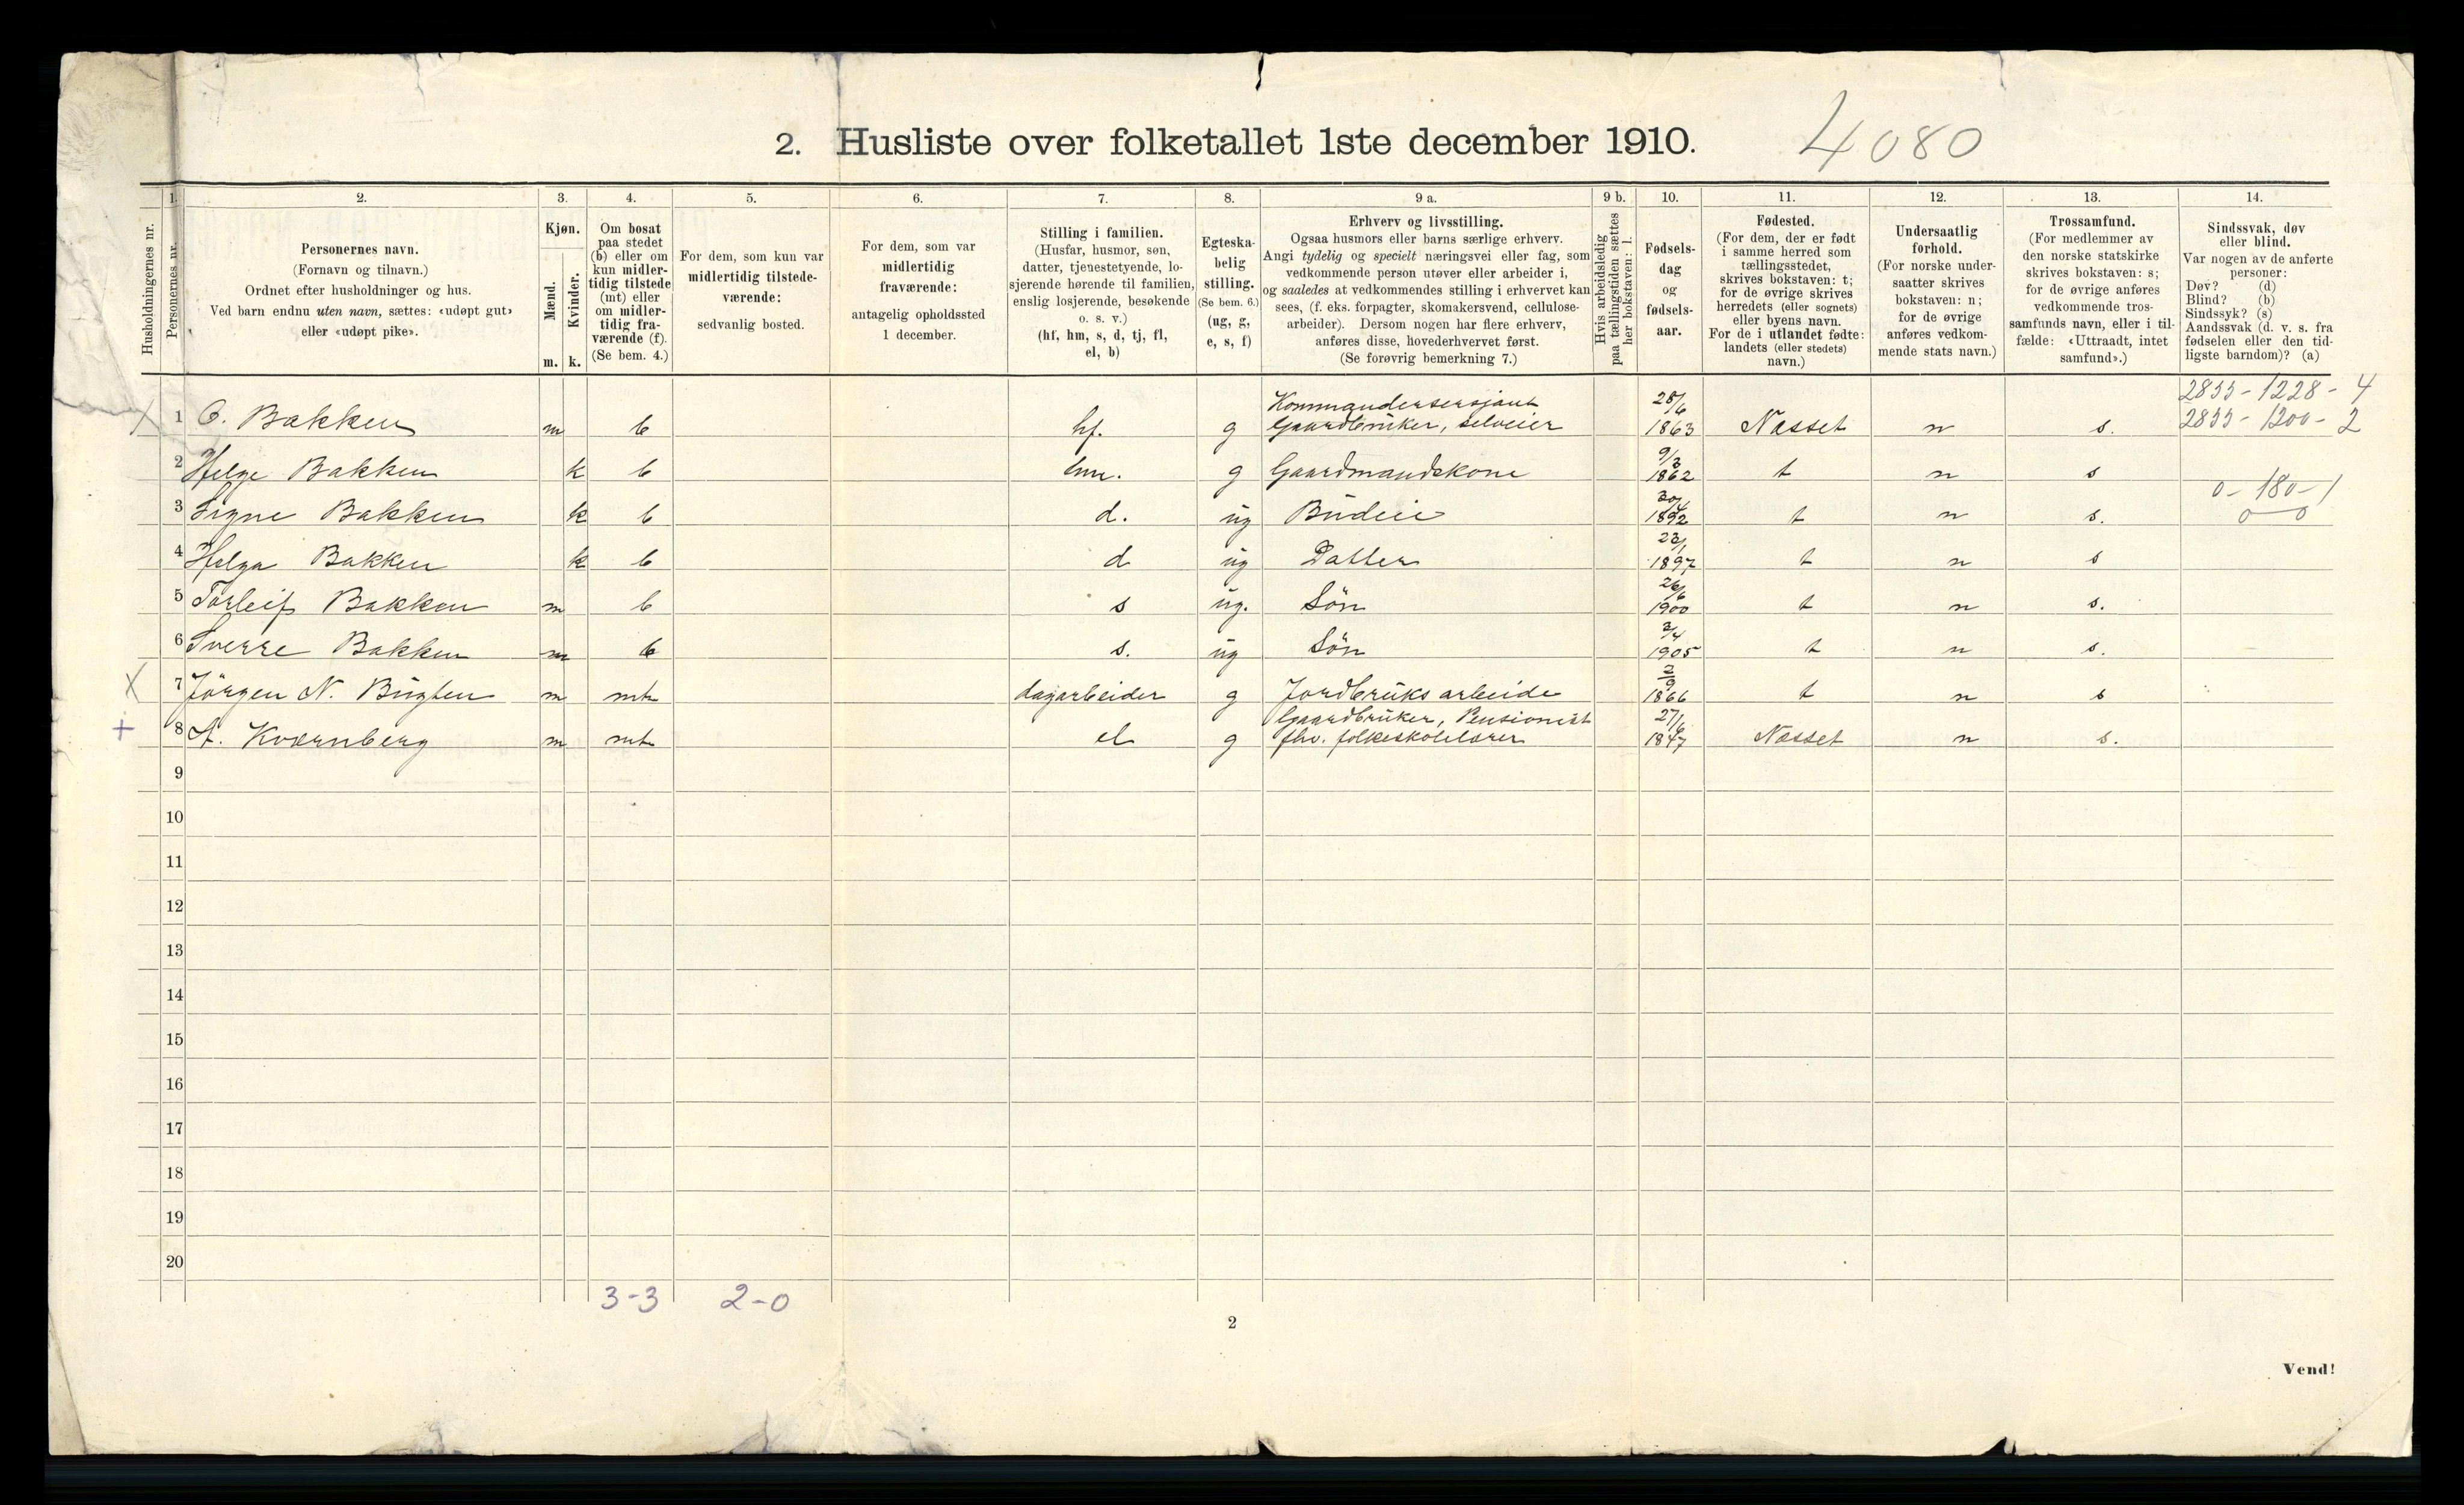 2. Husliste over folketallet 1ste december 1910.
4080
1. 2. 3. 4. 5. 6. 7. 8. 9 a. 9 b. 10. 11. 12. 13. 14.
Husholdningernes nr.
Personernes nr.
Personernes navn.
(Fornavn og tilnavn.)
Ordnet efter husholdninger og hus.
Ved barn endnu uten navn, sættes: «udøpt gut»
eller «udøpt pike».
Kjøn.
Mænd.
Kvinder.
m. k.
Om bosat
paa stedet
(b) eller om
kun midler-
tidig tilstede
(mt) eller
om midler-
tidig fra-
værende (f).
(Se bem. 4.)
For dem, som kun var
midlertidig tilstede-
værende:
sedvanlig bosted.
For dem, som var
midlertidig
fraværende:
antagelig opholdssted
1 december.
Stilling i familien.
(Husfar, husmor, søn,
datter, tjenestetyende, lo-
sjerende hørende til familien,
enslig losjerende, besøkende
o. s. v.)
(hf, hm, s, d, tj, fl,
el, b)
Egteska-
belig
stilling.
(Se bem. 6.)
(ug, g,
e, s, f)
Erhverv og livsstilling.
Ogsaa husmors eller barns særlige erhverv.
Angi tydelig og specielt næringsvei eller fag, som
vedkommende person utøver eller arbeider i,
og saaledes at vedkommendes stilling i erhvervet kan
sees, (f. eks. forpagter, skomakersvend, cellulose-
arbeider). Dersom nogen har flere erhverv,
anføres disse, hovederhvervet først.
(Se forøvrig bemerkning 7.)
Hvis arbeidsledig
paa tællingstiden sættes
her bokstaven: l.
Fødsels-
dag
og
fødsels-
aar.
Fødested.
(For dem, der er født
i samme herred som
tællingsstedet,
skrives bokstaven: t;
for de øvrige skrives
herredets (eller sognets)
eller byens navn.
For de i utlandet fødte:
landets (eller stedets)
navn.)
Undersaatlig
forhold.
(For norske under-
saatter skrives
bokstaven: n;
for de øvrige
anføres vedkom-
mende stats navn.)
Trossamfund.
(For medlemmer av
den norske statskirke
skrives bokstaven: s;
for de øvrige anføres
vedkommende tros-
samfunds navn, eller i til-
fælde: «Uttraadt, intet
samfund».)
Sindssvak, døv
eller blind.
Var nogen av de anførte
personer:
Døv? (d)
Blind? (b)
Sindssyk? (s)
Aandssvak (d. v. s. fra
fødselen eller den tid-
ligste barndom)? (a)
Kommandersersjant 28/6 2855 - 1228 - 4
X 1 O. Bakken m b hf. g Gaardbruker, selveier 1863 Nesset n s. 2855 - 1200 - 2
9/3
2 Helge Bakken k b hm. g Gaardmandskone 1862 t n s
0 - 180 - 1
3 Signe Bakken k b d. ug Budeie 1892 t n s. 0 0
23/1
4 Helga Bakken k b d ug Datter 1897 t n s
26/6
5 Torleif Bakken m b s ug. Søn 1900 t n s.
3/4
6 Sverre Bakken m b s. ug Søn 1905 t n s.
2/9
X 7 Jörgen N. Bugten m mt dagarbeider g Jordbruks arbeide 1866 t n s
Gaardbruker, Pensionist 27/6
+ 8 A. Kvernberg m mt el g fhv. folkeskolelærer 1847 Nesset n s.
9
10
11
12
13
14
15
16
17
18
19
20
3-3 2-0
2
Vend!